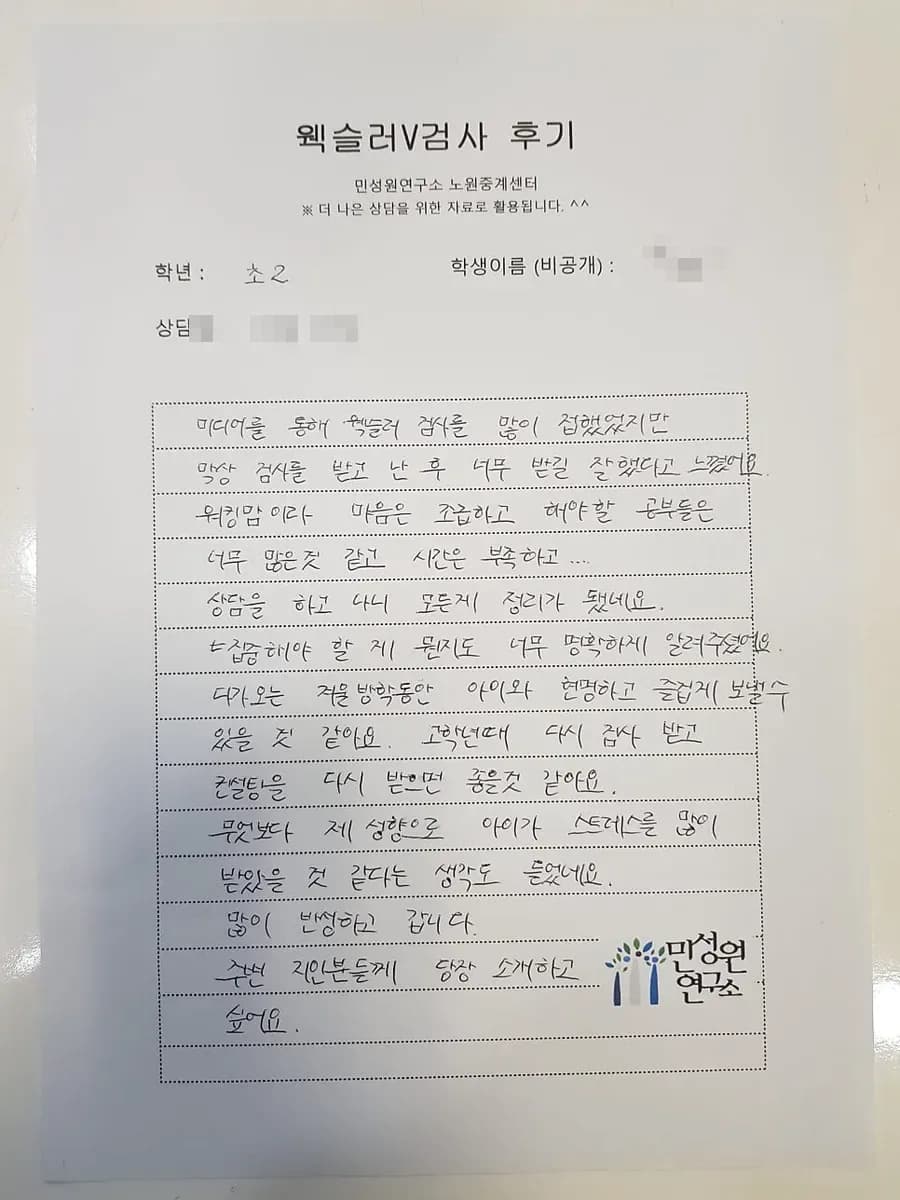 웩슬러V검사 후기
민성원연구소 노원중계센터
※ 더 나은 상담을 위한 자료로 활용됩니다. ^^
학년 : 초2 학생이름 (비공개) :
상담
미디어를 통해 웩슬러 검사를 많이 접했었지만
막상 검사를 받고 난 후 너무 받길 잘했다고 느꼈어요.
워킹맘이라 마음은 조급하고 해야할 공부들은
너무 많은것 같고 시간은 부족하고 ....
상담을 하고 나니 모든게 정리가 됐네요.
집중해야 할 게 뭔지도 너무 명확하게 알려주셨어요.
다가오는 겨울방학동안 아이와 현명하고 즐겁게 보낼수
있을 것 같아요. 고학년때 다시 검사 받고
컨설팅을 다시 받으면 좋을것 같아요.
무엇보다 제 성향으로 아이가 스트레스를 많이
받았을 것 같다는 생각도 들었네요.
많이 반성하고 갑니다.
주변 지인분들께 당장 소개하고
싶어요.
민성원
연구소